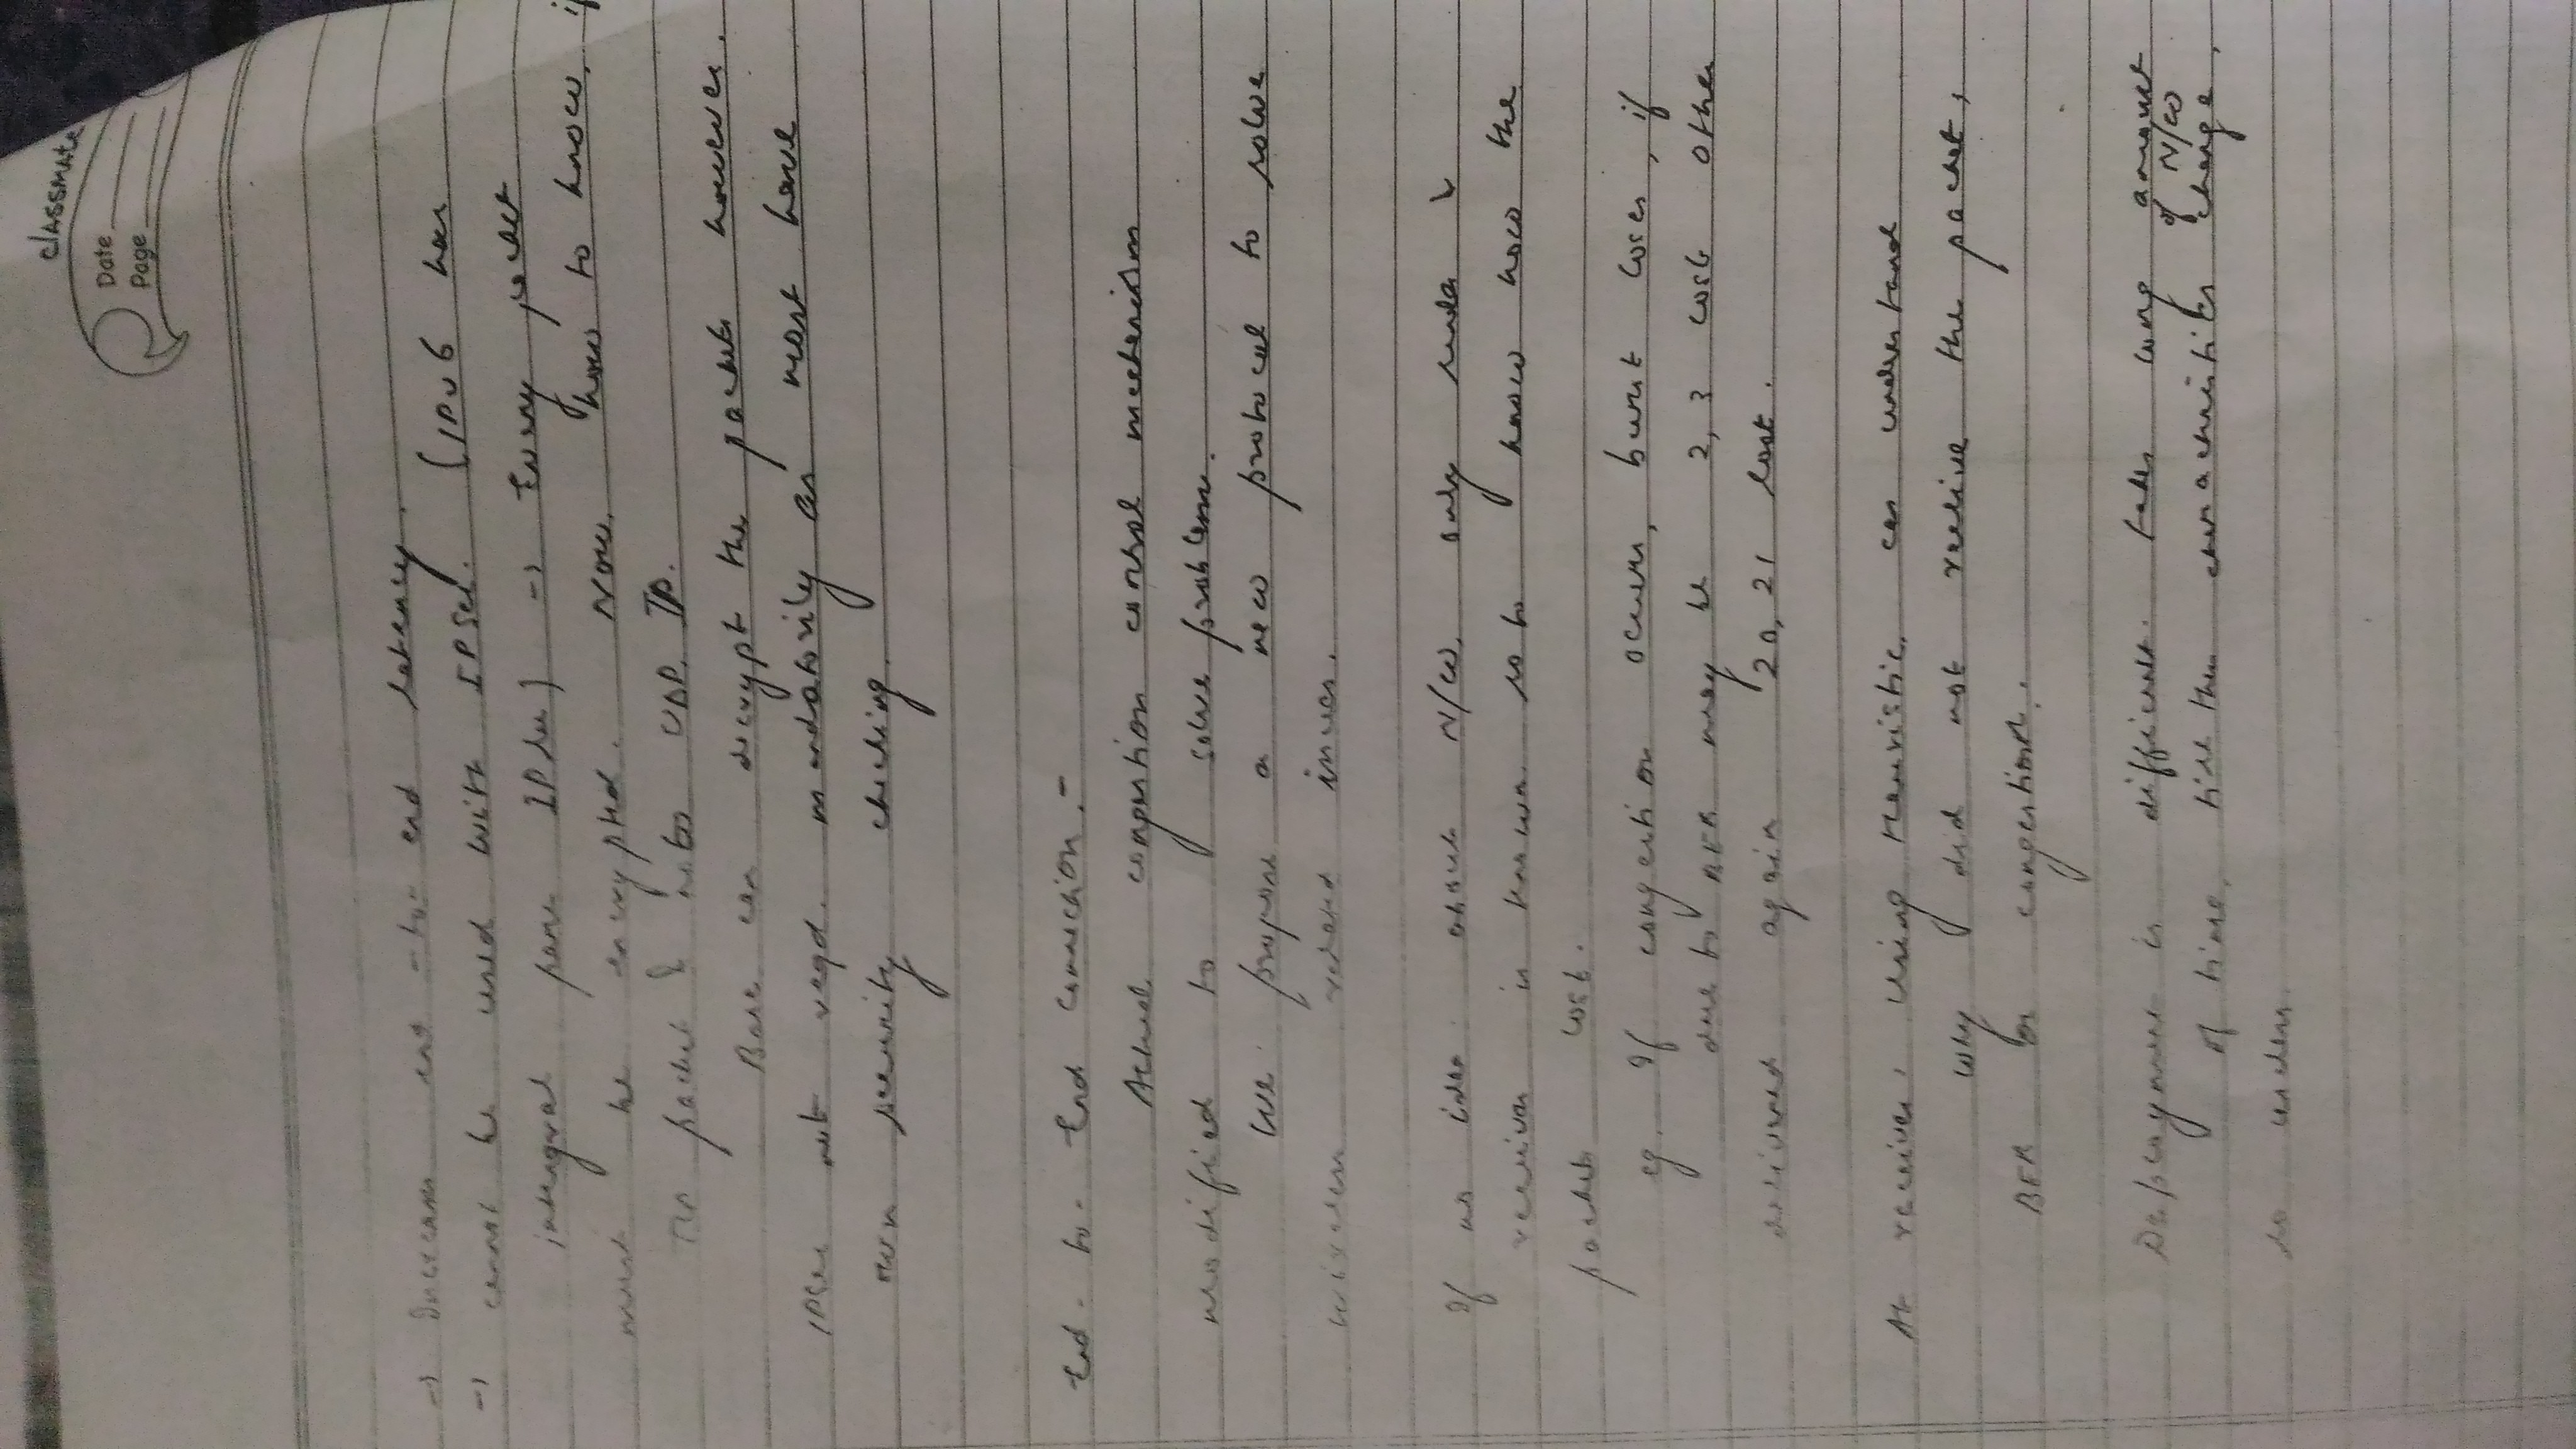 classmate
Date
Page
→ Increases end-to-end latency.
→ cannot be used with IPSec. (IPv6 has
integral IPSec) → Every packet
must be encrypted. Now, how to know, if
packet & UDP, IP.
Base can decrypt the packets however.
IPSec not reqd. mandatorily as most have
own security checking.
End-to-End Connection:-
Actual congestion control mechanism
modified to solve problem.
We propose a new protocol to solve
wireless related issues.
If no idea about N/W, only sender &
receiver is known so to know how the
packets lost.
eg. If congestion occurs, burst loses, if
due to BER may be 2, 3 lost other
delivered again 20, 21 lost.
At receiver, Using Heuristic, can understand
why did not receive the packet,
BER or congestion.
Deployment is difficult. takes long amount
of N/W
of time, till then characteristics change,
so useless.